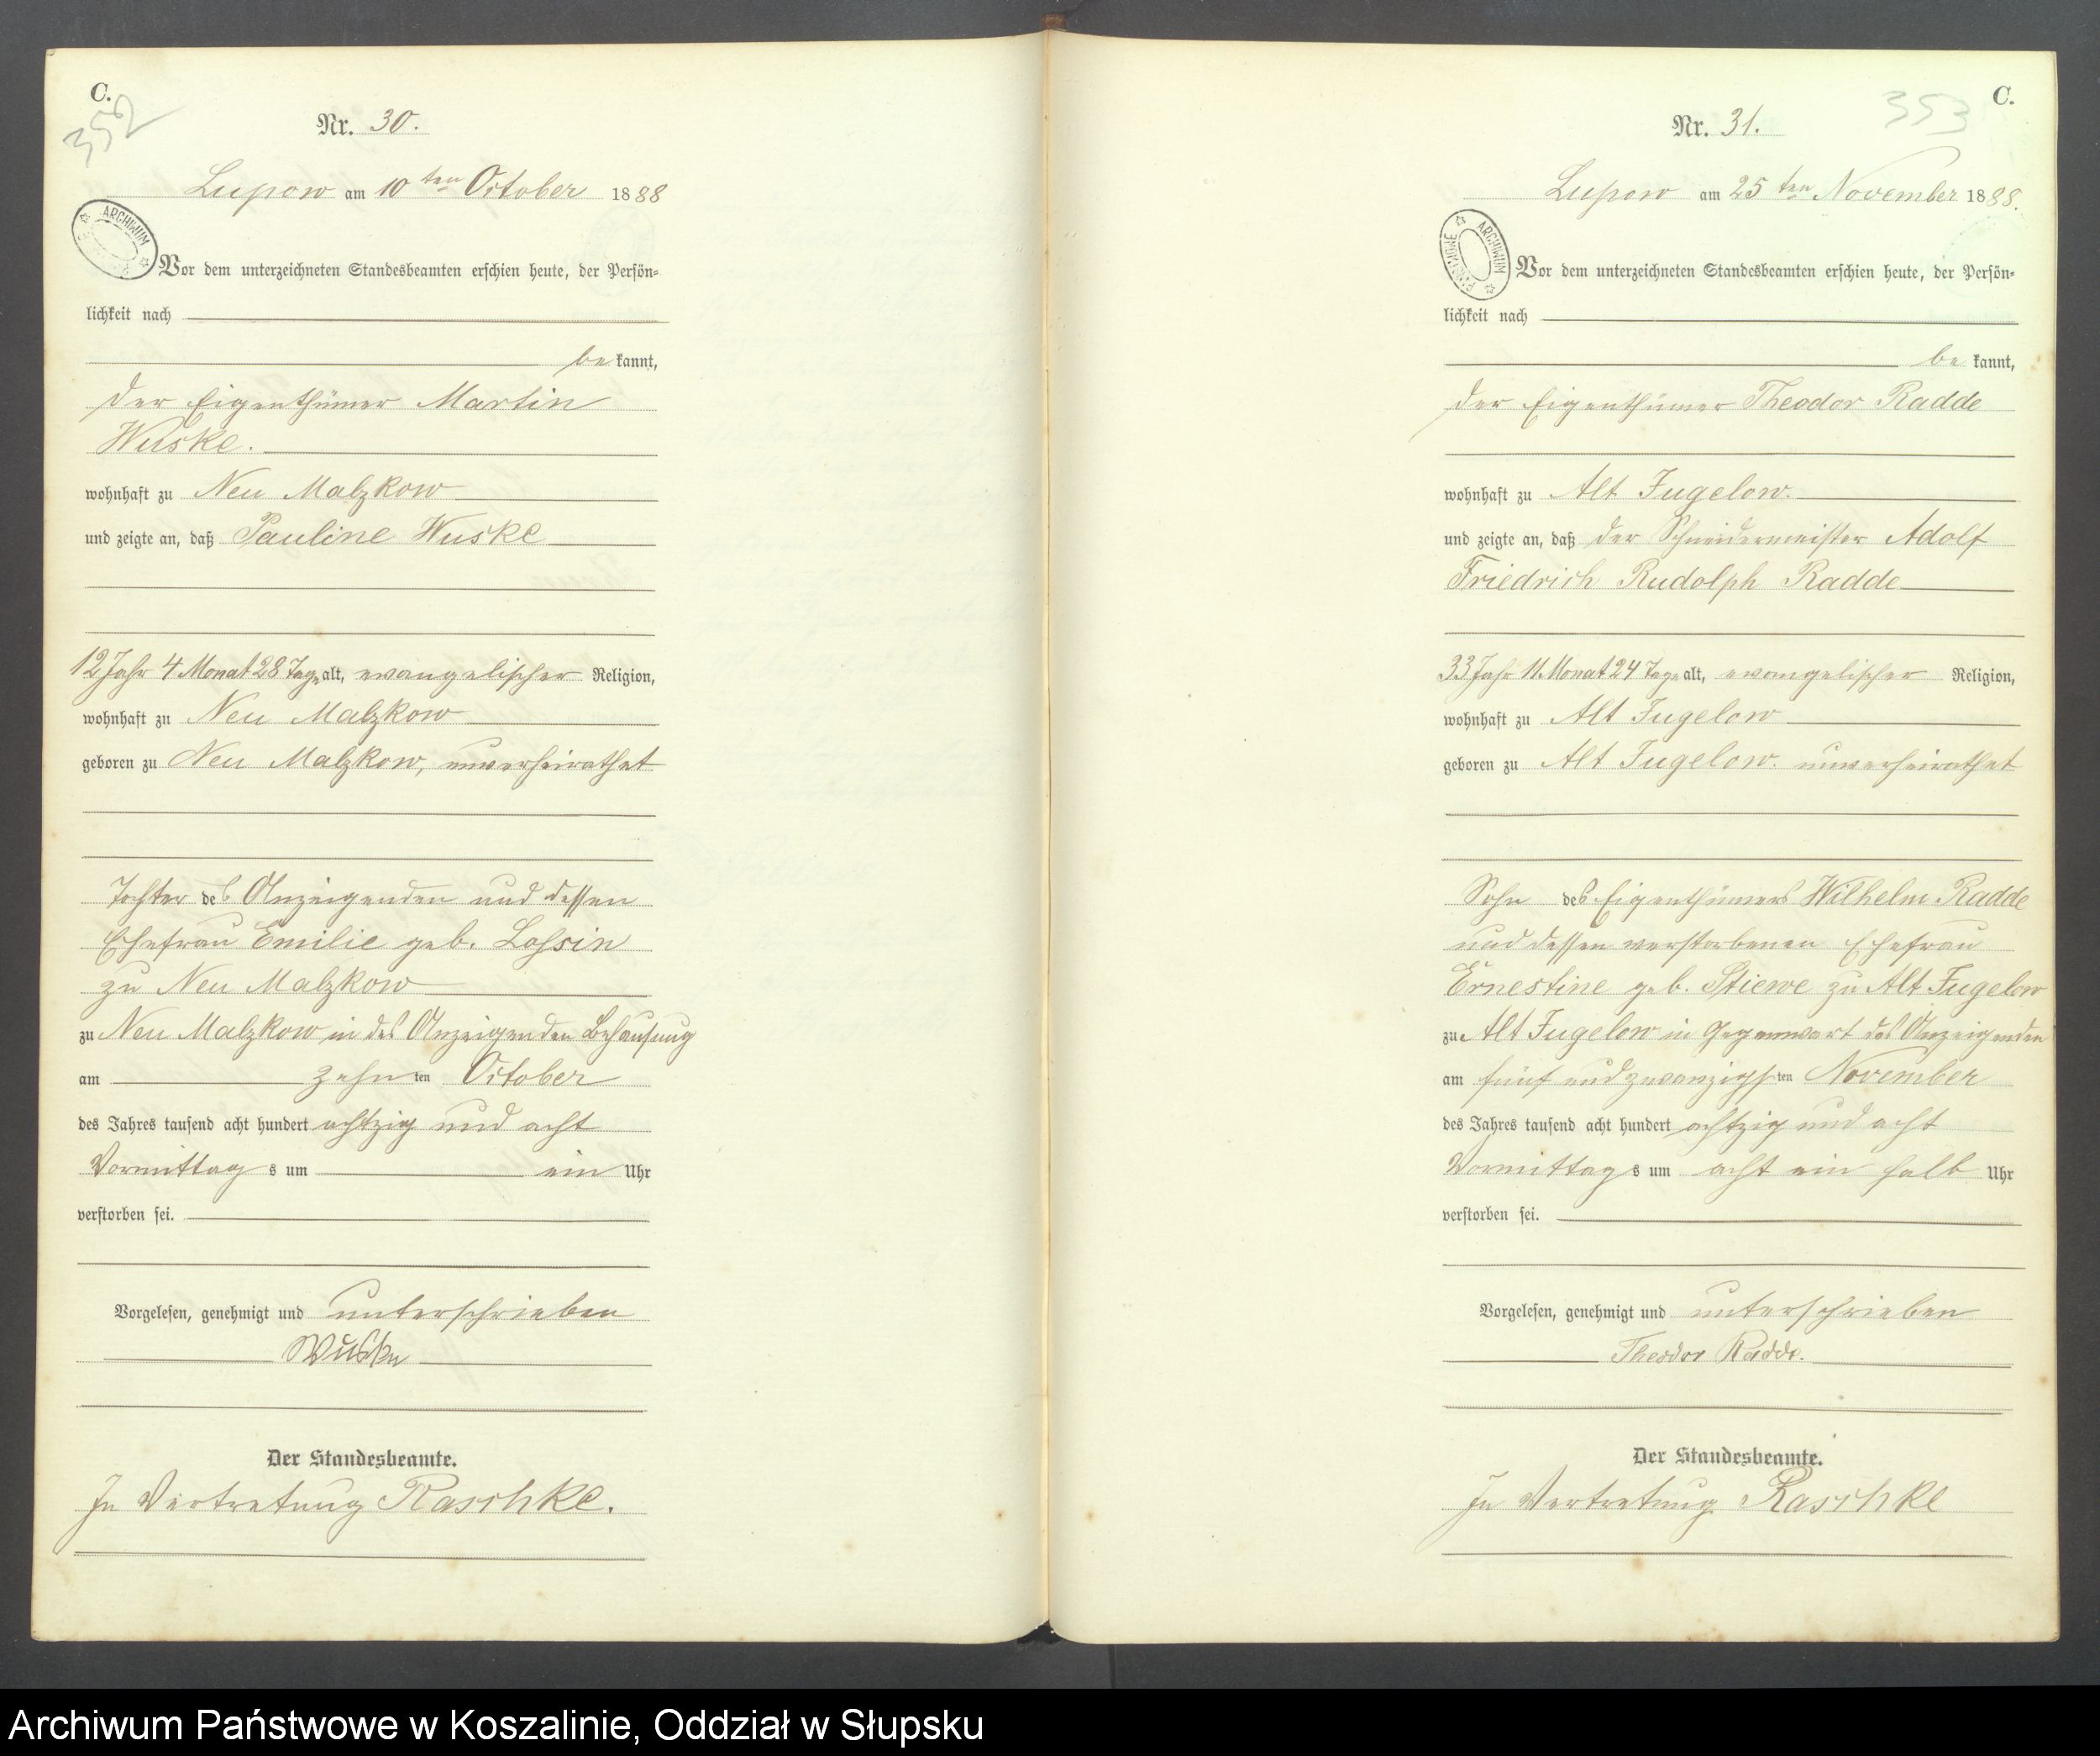 C.
352
Nr. 30.
Lupow am 10ten October 1888
ARCHIWUM
Vor dem unterzeichneten Standesbeamten erschien heute, der Persön-
lichkeit nach
be kannt,
der Eigenthümer Martin
Wuske.
wohnhaft zu Neu Malzkow
und zeigte an, daß Pauline Wuske
12 Jahr 4 Monat 28 Tage alt, evangelischer Religion,
wohnhaft zu Neu Malzkow
geboren zu Neu Malzkow, unverheirathet
Tochter des Anzeigenden und dessen
Ehefrau Emilie geb. Lossin
zu Neu Malzkow
zu Neu Malzkow in des Anzeigenden Behausung
am zehn ten October
des Jahres tausend acht hundert achtzig und acht
Vormittag s um ein Uhr
verstorben sei.
Vorgelesen, genehmigt und unterschrieben
Wuske
Der Standesbeamte.
In Vertretung Raschke.
C.
353
Nr. 31.
Lupow am 25ten November 1888.
ARCHIWUM
Vor dem unterzeichneten Standesbeamten erschien heute, der Persön-
lichkeit nach
be kannt,
der Eigenthümer Theodor Radde
wohnhaft zu Alt Jugelow.
und zeigte an, daß der Schneidermeister Adolf
Friedrich Rudolph Radde
33 Jahr 11 Monat 24 Tage alt, evangelischer Religion,
wohnhaft zu Alt Jugelow
geboren zu Alt Jugelow. unverheirathet
Sohn des Eigenthümers Wilhelm Radde
und dessen verstorbenen Ehefrau
Ernestine geb. Stiewe zu Alt Jugelow
zu Alt Jugelow in Gegenwart des Anzeigenden
am fünf und zwanzigs ten November
des Jahres tausend acht hundert achtzig und acht
Vormittag s um acht ein halb Uhr
verstorben sei.
Vorgelesen, genehmigt und unterschrieben
Theodor Radde.
Der Standesbeamte.
In Vertretung Raschke
Archiwum Państwowe w Koszalinie, Oddział w Słupsku